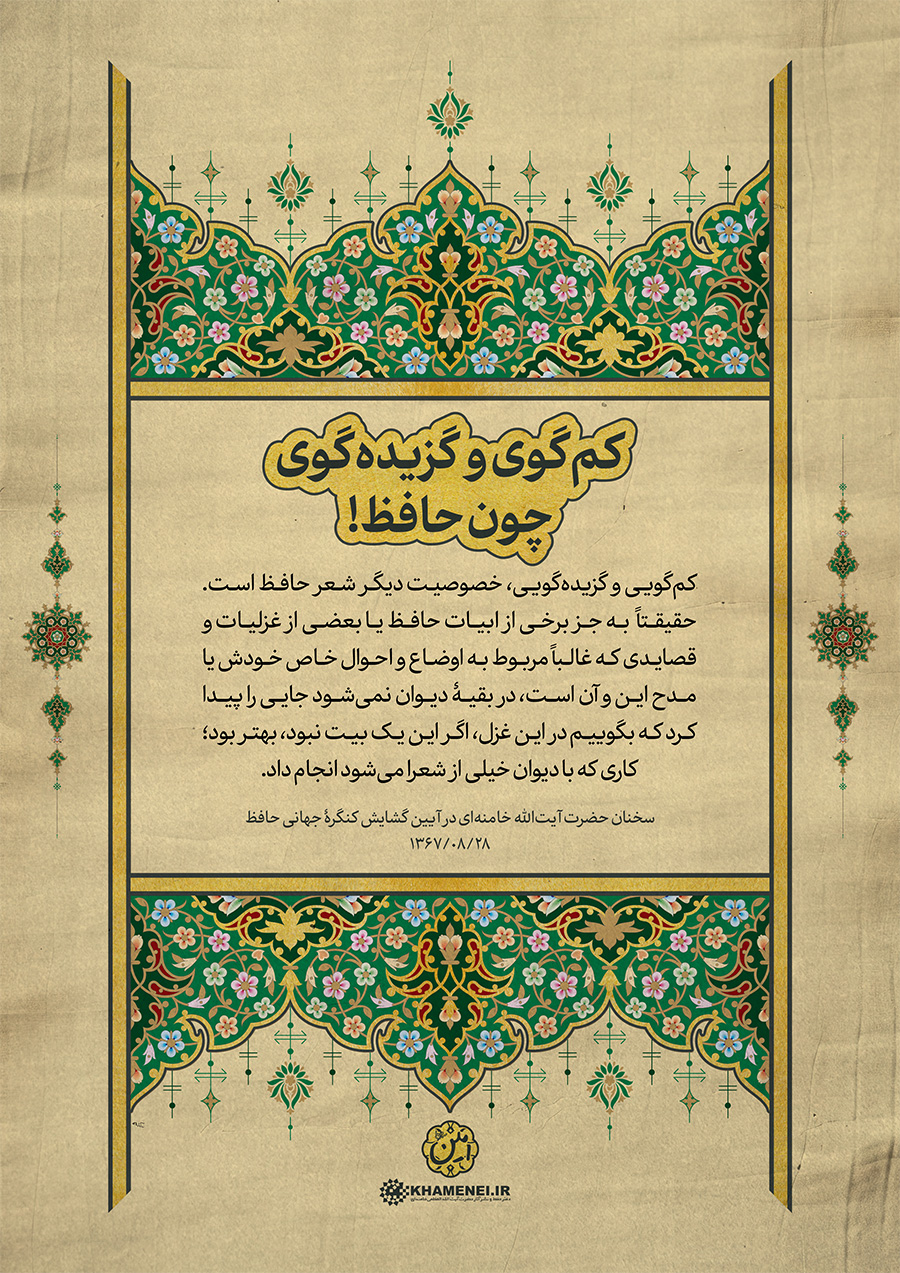 کم‌گوی و گزیده‌گوی
چون حافظ!
کم‌گویی و گزیده‌گویی، خصوصیت دیگر شعر حافظ است.
حقیقتاً به جز برخی از ابیات حافظ یا بعضی از غزلیات و
قصایدی که غالباً مربوط به اوضاع و احوال خاص خودش یا
مدح این و آن است، در بقیهٔ دیوان نمی‌شود جایی را پیدا
کرد که بگوییم در این غزل، اگر این یک بیت نبود، بهتر بود؛
کاری که با دیوان خیلی از شعرا می‌شود انجام داد.
سخنان حضرت آیت‌الله خامنه‌ای در آیین گشایش کنگرهٔ جهانی حافظ
۱۳۶۷/۰۸/۲۸
KHAMENEI.IR